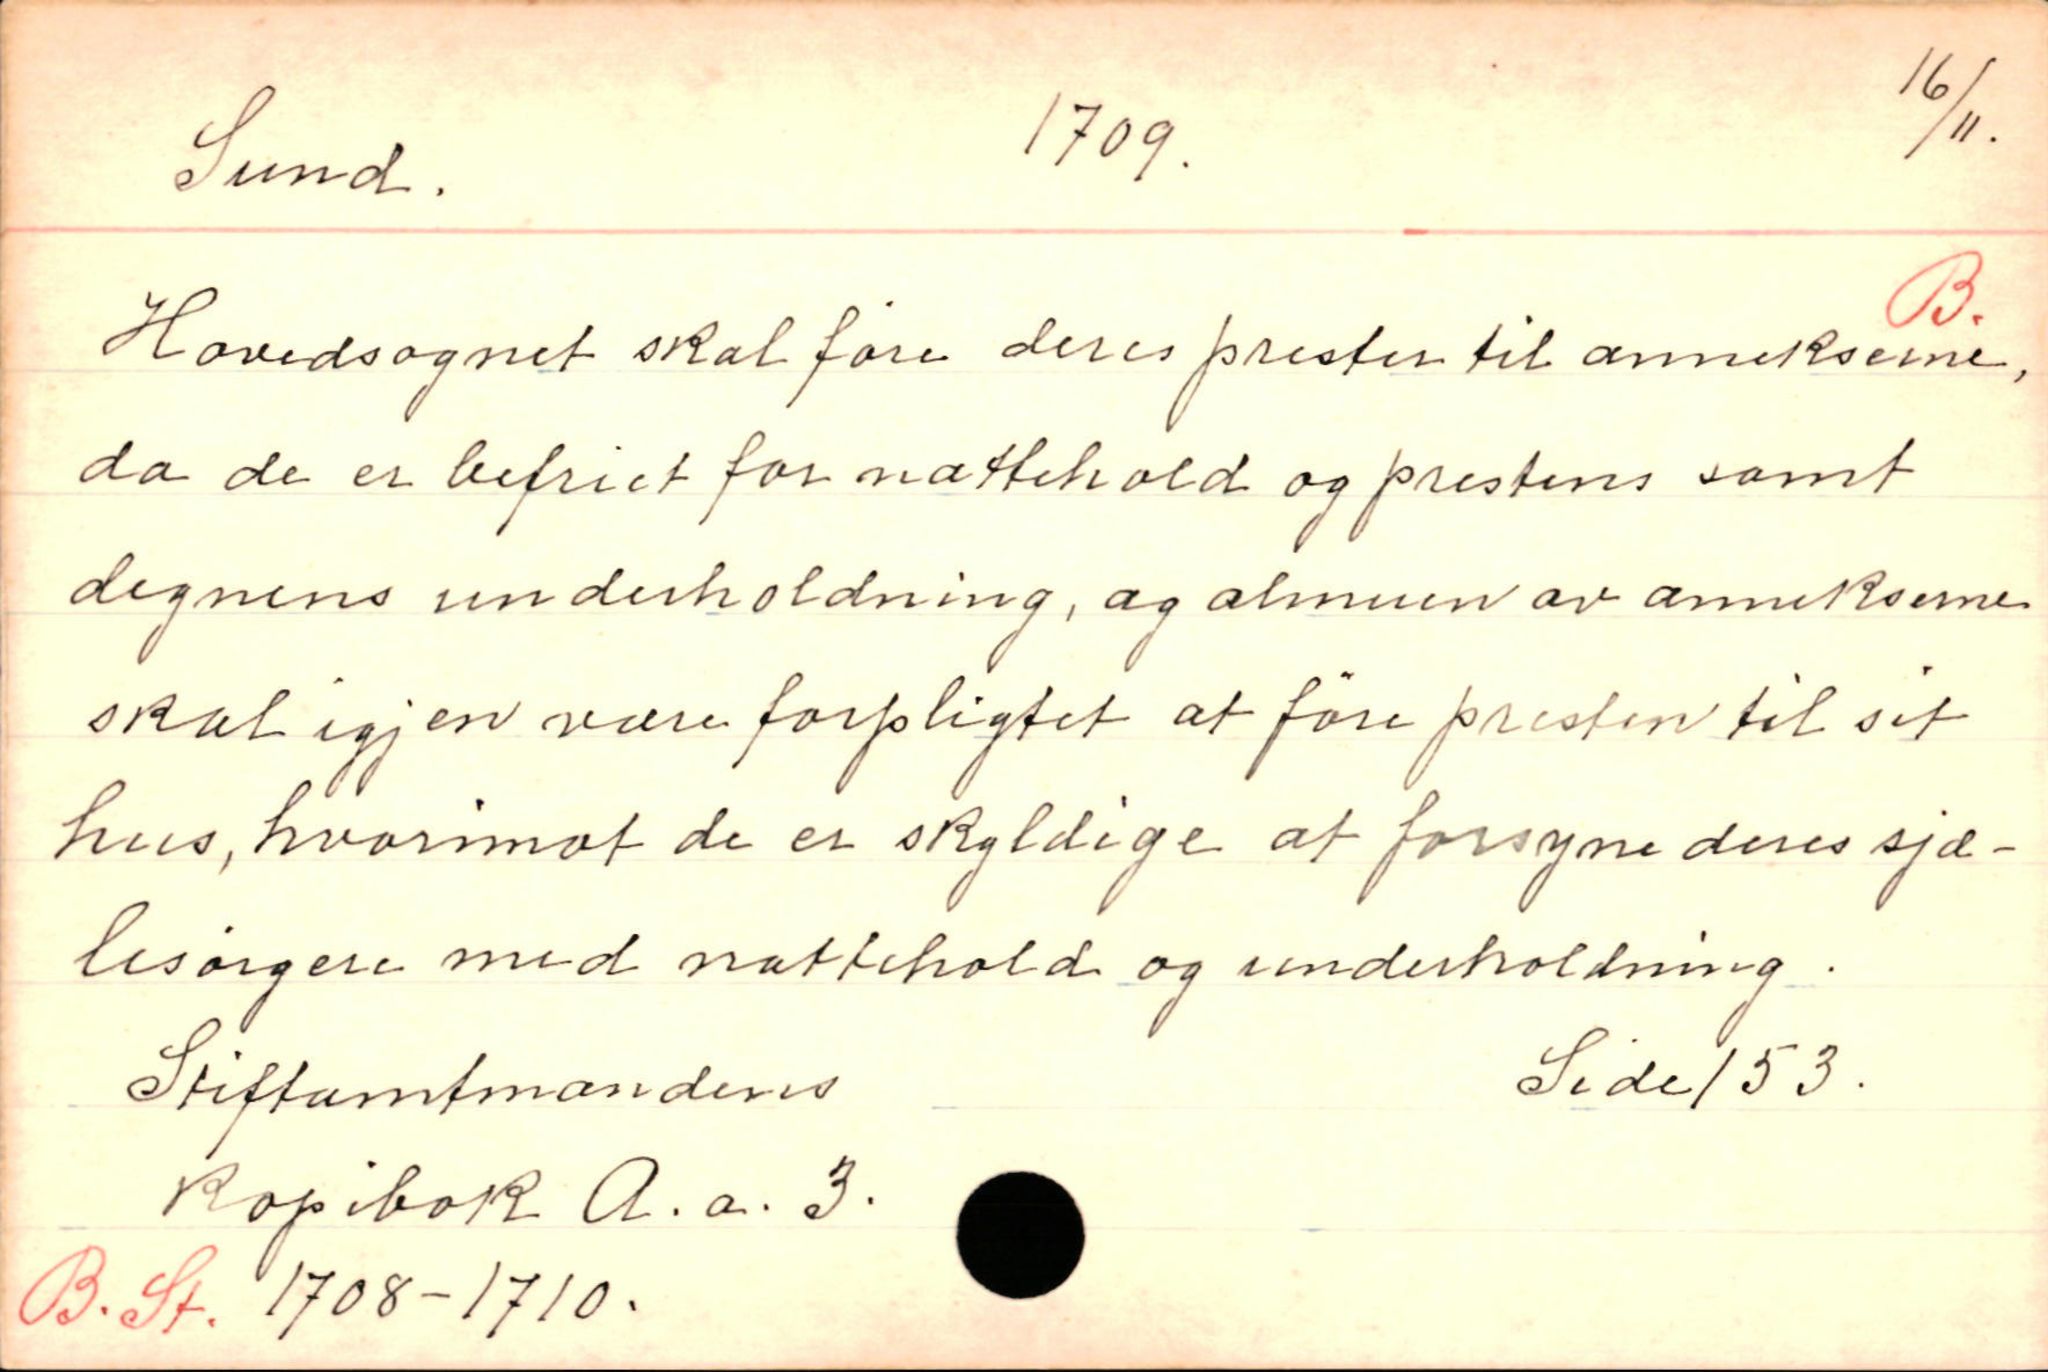 Sund. 1709. 16/11.
B.
Hovedsognet skal före deres prester til annekserne,
da de er befriet for nattehold og prestens samt
degnens underholdning, og almuen av annekserne
skal igjen være forpligtet at före presten til sit
hus, hvorimot de er skyldige at forsyne deres sjæ-
lesörgere med nattehold og underholdning.
Stiftamtmandens Side 153.
Kopibok A. a. 3.
B. St. 1708-1710.